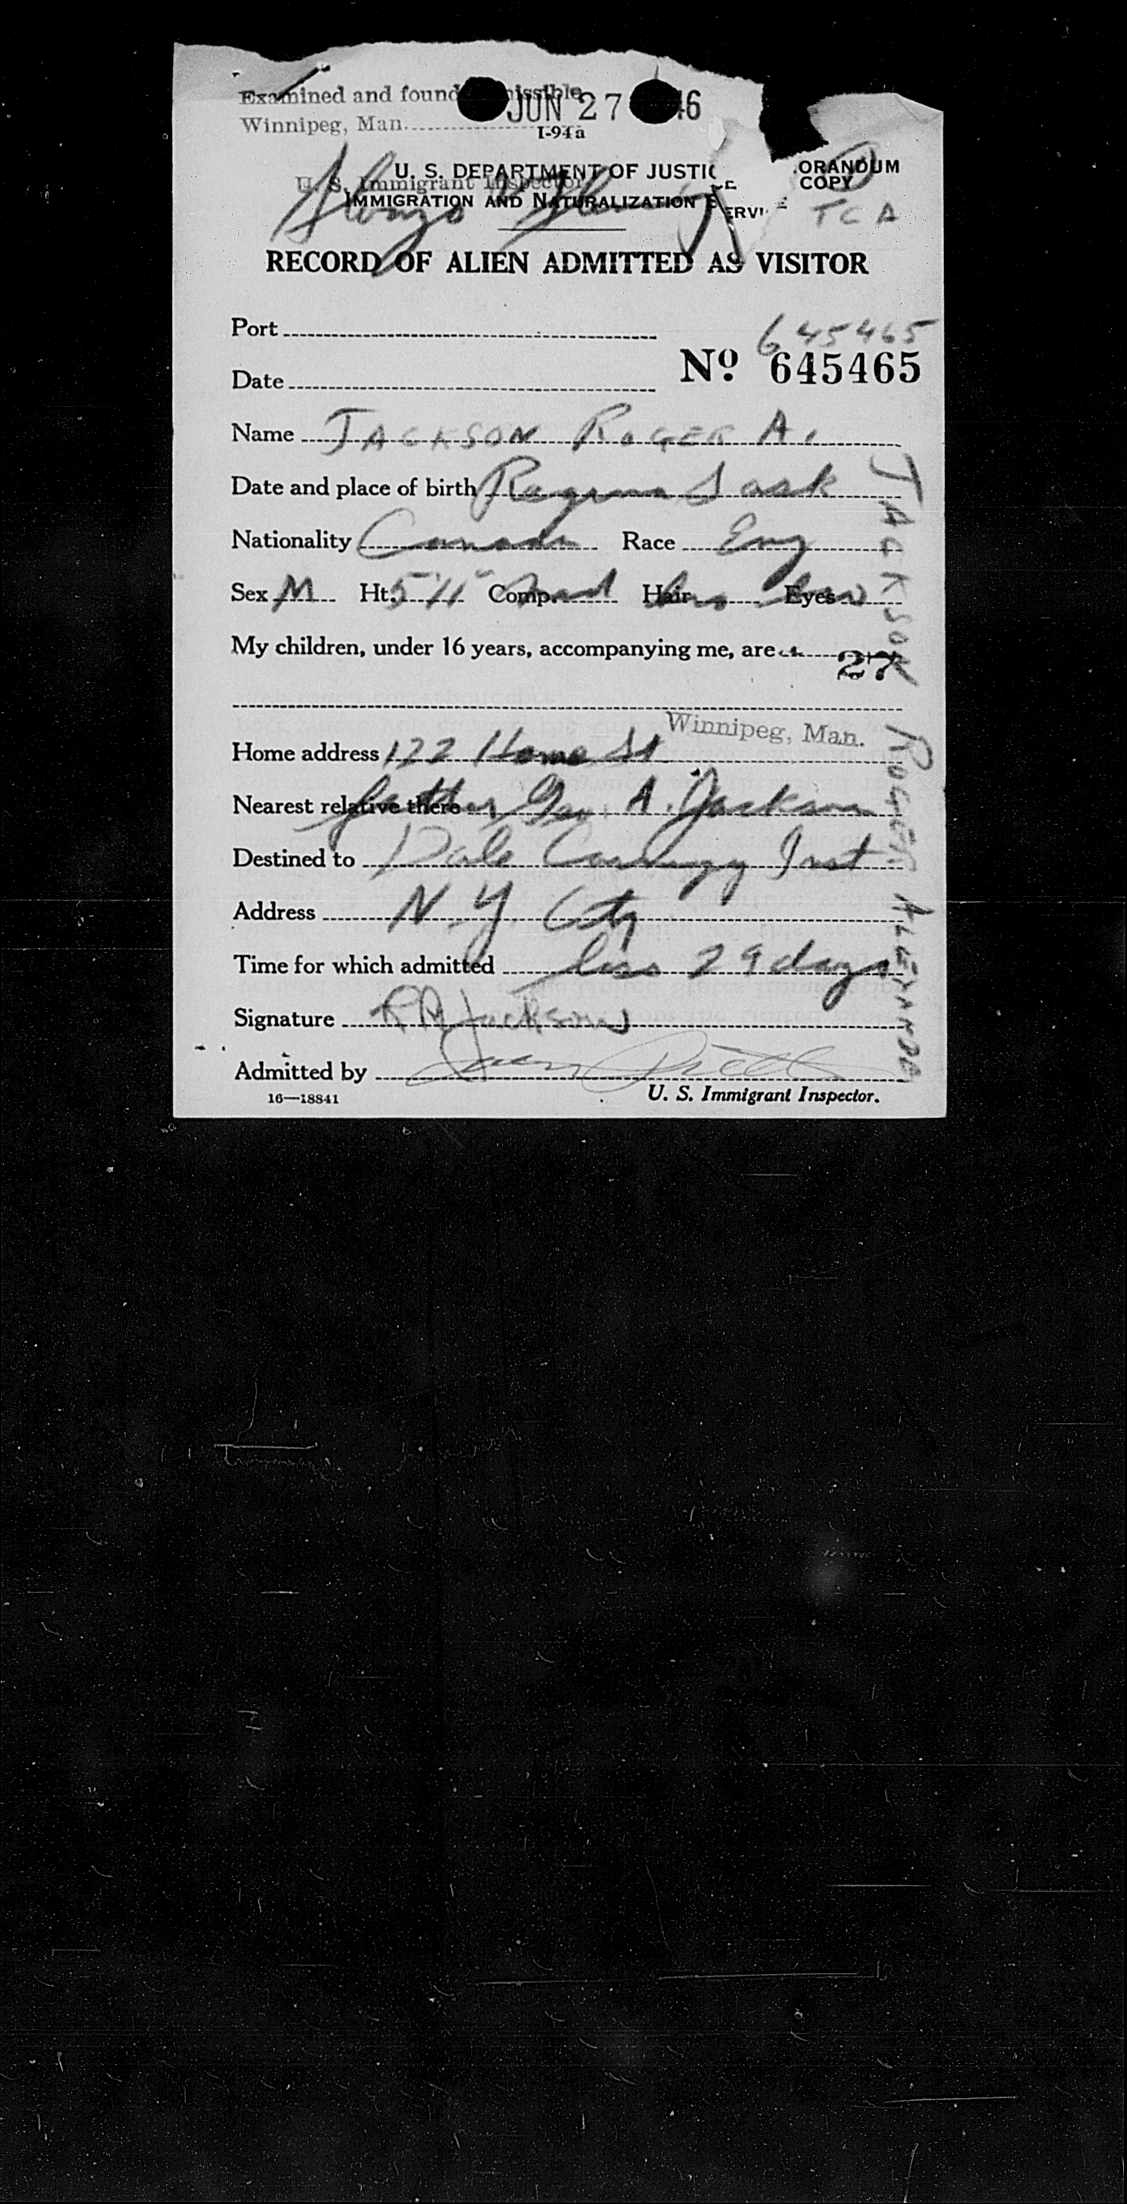 Examined and found
JUN 27 46
Winnipeg, Man.
I-94a
U. S. DEPARTMENT OF JUSTIC
ORANDUM
COPY
U. S. Immigrant Inspector
IMMIGRATION AND NATURALIZATION SERVI
TCA
Alonzo
RECORD OF ALIEN ADMITTED AS VISITOR
Port
645465
No. 645465
Date
Name JACKSON ROGER A.
Date and place of birth Regina Sask
Nationality Canada Race Eng
Sex M Ht. 5'11" Comp. med Hair bro Eyes bro
My children, under 16 years, accompanying me, are
27
Winnipeg, Man.
Home address 122 Home St
Nearest relative there father Geo A. Jackson
Destined to Dale Carnegy Inst
Address N.Y. City
Time for which admitted less 29 days
Signature RA Jackson
Admitted by
16—18841
U. S. Immigrant Inspector.
JACKSON ROGER ALEXANDE